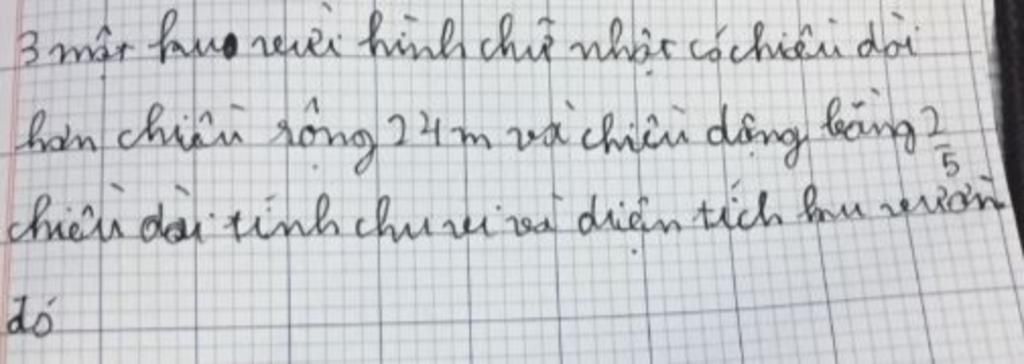 3 một khu vười hình chữ nhật có chiều dài
hơn chiều rộng 24m và chiều dộng bằng 2/5
chiều dài tính chu vi và diện tích khu vườn
đó